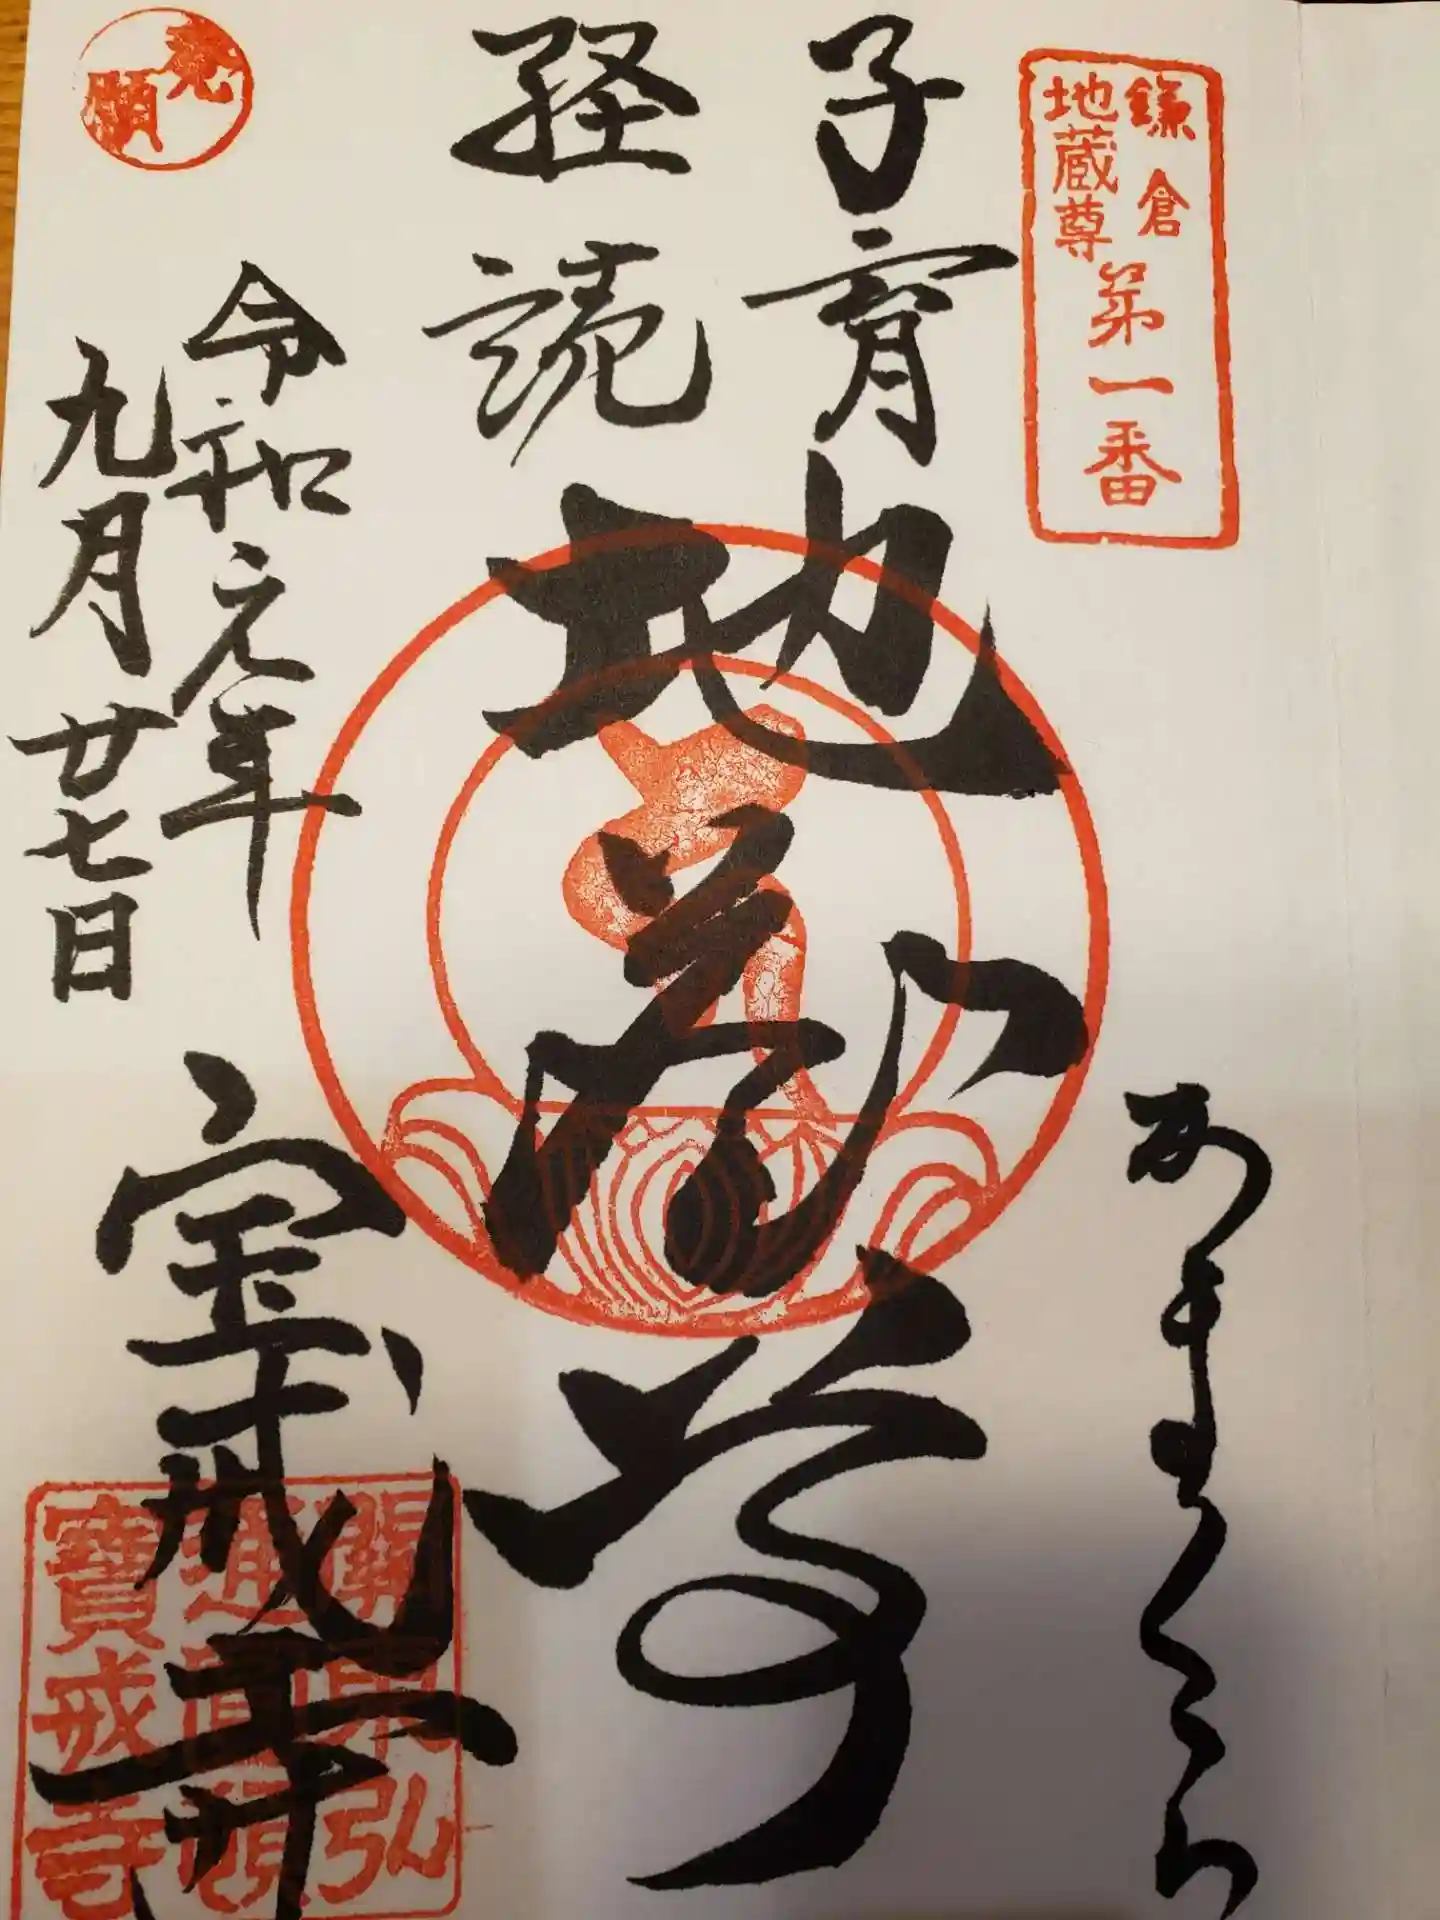 鎌倉
地蔵尊
第一番
かまくら
子育
経読
地蔵尊
令和元年
九月廿七日
宝戒寺
発願
關東弘
通圓頓
寶戒寺